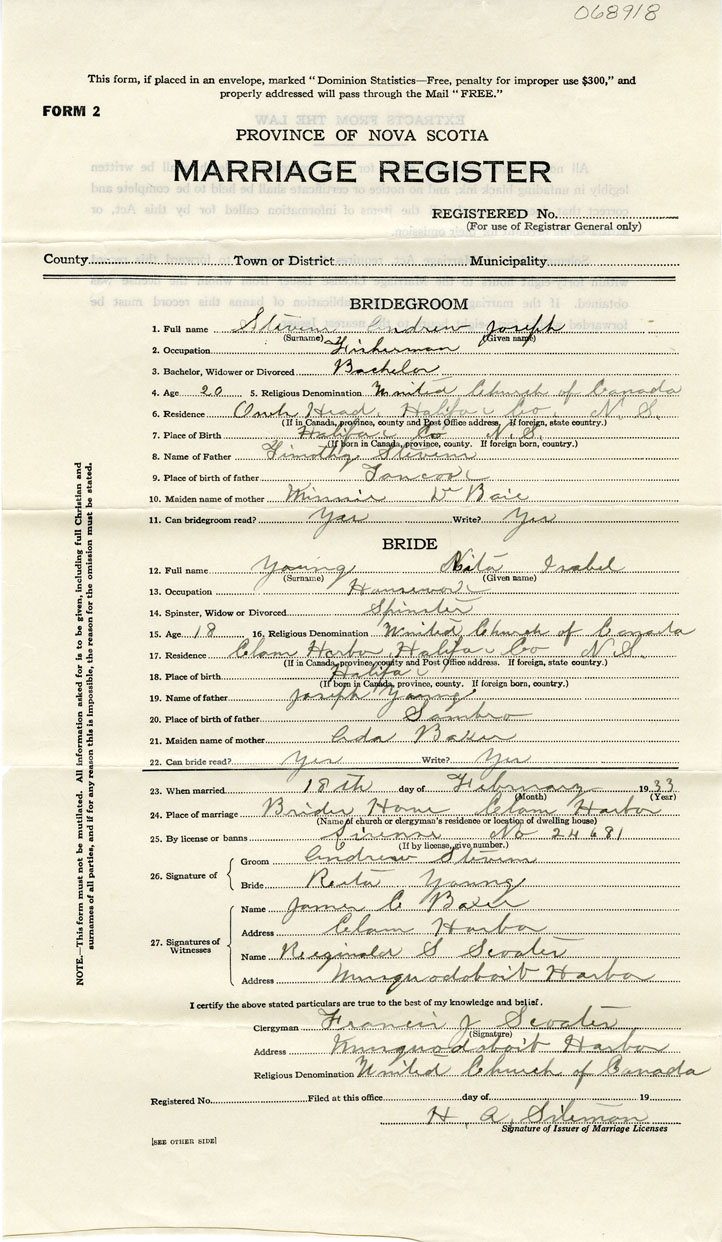 068918
This form, if placed in an envelope, marked "Dominion Statistics—Free, penalty for improper use $300," and
properly addressed will pass through the Mail "FREE."
FORM 2
PROVINCE OF NOVA SCOTIA
MARRIAGE REGISTER
REGISTERED No.
(For use of Registrar General only)
County Town or District Municipality
BRIDEGROOM
1. Full name Stevens Andrew Joseph
(Surname) (Given name)
2. Occupation Fisherman
3. Bachelor, Widower or Divorced Bachelor
4. Age 20 5. Religious Denomination United Church of Canada
6. Residence Owls Head, Halifax Co. N. S.
(If in Canada, province, county and Post Office address. If foreign, state country.)
7. Place of Birth Halifax Co N. S.
(If born in Canada, province, county. If foreign born, country.)
8. Name of Father Timothy Stevens
9. Place of birth of father Tancook
10. Maiden name of mother Minnie De Baie
11. Can bridegroom read? Yes Write? Yes
BRIDE
12. Full name Young Isabel
(Surname) (Given name)
13. Occupation Housework
14. Spinster, Widow or Divorced Spinster
15. Age 18 16. Religious Denomination United Church of Canada
17. Residence Clam Harbor, Halifax Co N. S.
(If in Canada, province, county and Post Office address. If foreign, state country.)
18. Place of birth Halifax
(If born in Canada, province, county. If foreign born, country.)
19. Name of father Joseph Young
20. Place of birth of father Sambro
21. Maiden name of mother Ada Baker
22. Can bride read? Yes Write? Yes
23. When married 18th day of February 1933
(Month) (Year)
24. Place of marriage Brides Home Clam Harbor
(Name of church or clergyman's residence or location of dwelling house)
25. By license or banns License No 24681
(If by license, give number.)
26. Signature of
Groom Andrew Stevens
Bride Reita Young
27. Signatures of
Witnesses
Name James C Baker
Address Clam Harbor
Name Reginald S
Address Musquodoboit Harbor
I certify the above stated particulars are true to the best of my knowledge and belief.
Clergyman Francis J
(Signature)
Address Musquodoboit Harbor
Religious Denomination United Church of Canada
Registered No. Filed at this office day of 19
H. A.
Signature of Issuer of Marriage Licenses
[SEE OTHER SIDE]
NOTE.—This form must not be mutilated. All information asked for is to be given, including full Christian and
surnames of all parties, and if for any reason this is impossible, the reason for the omission must be stated.